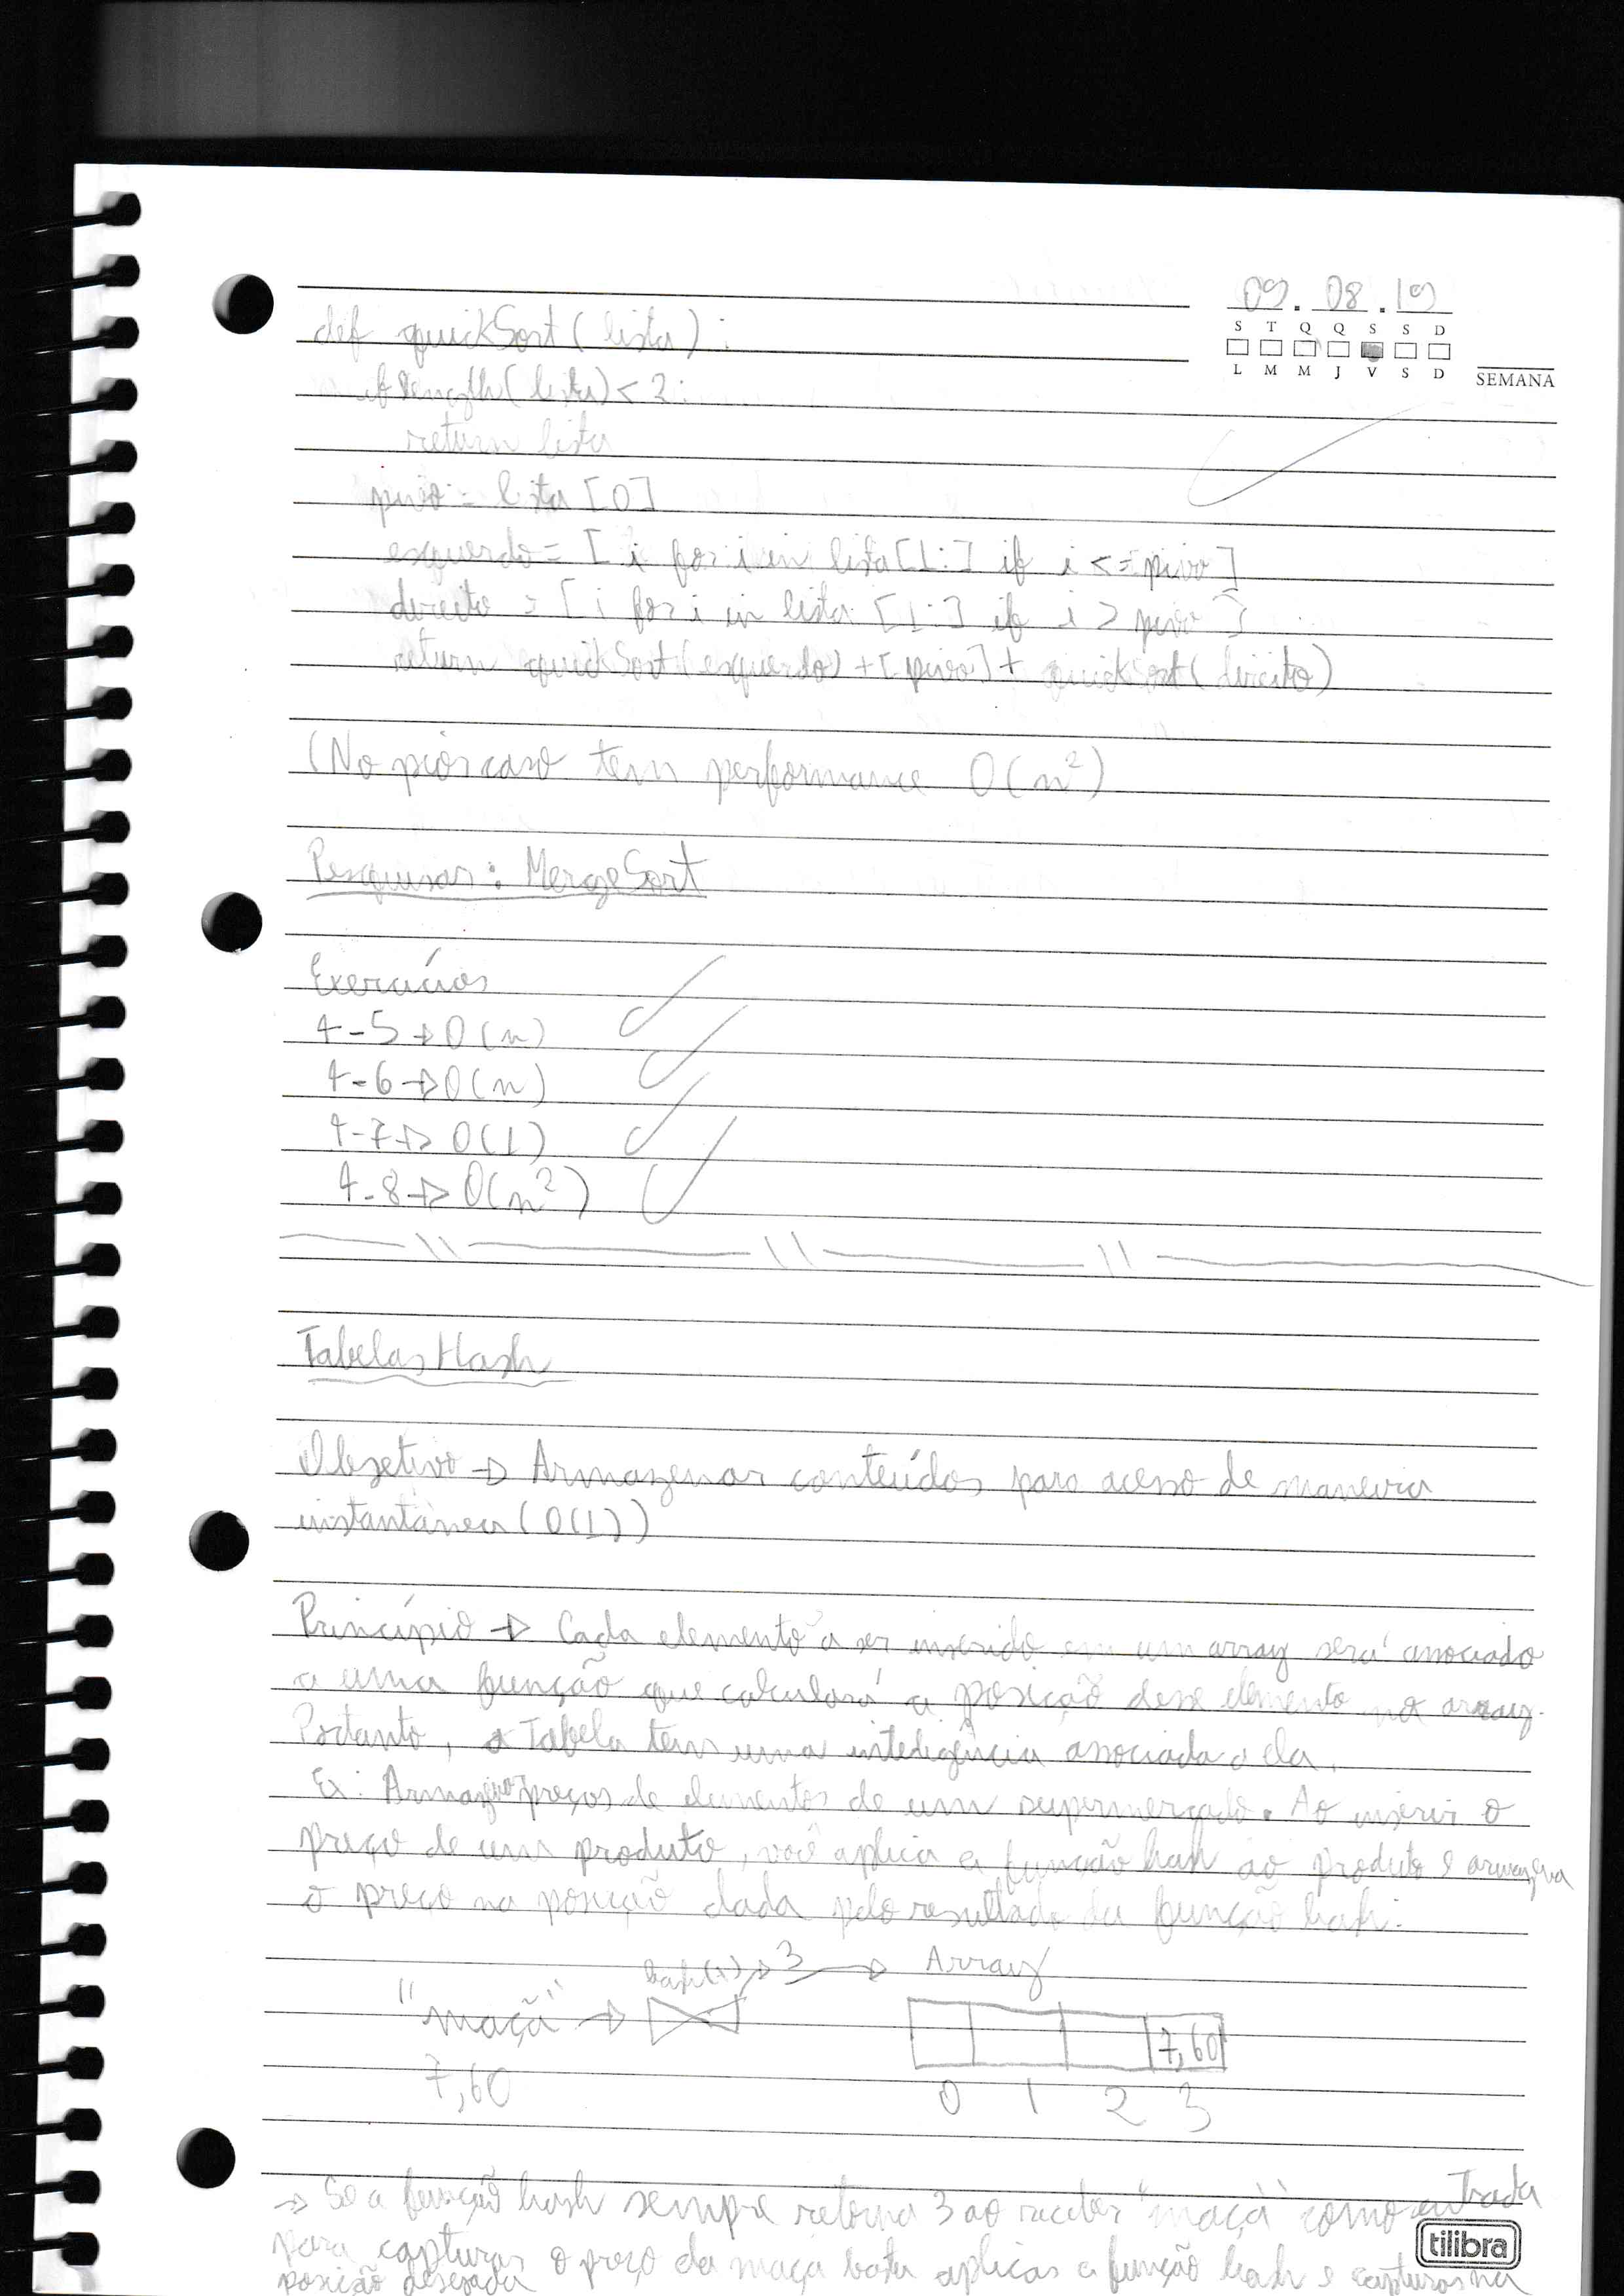 09.08.19
S T Q Q S S D
L M M J V S D
SEMANA
def quickSort(lista):
if length(lista) < 2:
return lista
pivo = lista[0]
esquerdo = [i for i in lista[1:] if i <= pivo]
direito = [i for i in lista[1:] if i > pivo]
return quickSort(esquerdo) + [pivo] + quickSort(direito)
(No pior caso tem performance O(n²)
Pesquisar: MergeSort
Exercícios
4-5 → O(n)
4-6 → O(n)
4-7 → O(1)
4-8 → O(n²)
Tabelas Hash
Objetivo → Armazenar conteúdos para acesso de maneira
instantânea (O(1))
Princípio → Cada elemento a ser inserido em um array será associado
a uma função que calculará a posição desse elemento no array.
Portanto, a Tabela tem uma inteligência associada a ela.
Ex: Armazenar preços de elementos de um supermercado. Ao inserir o
preço de um produto, você aplica a função hash ao produto e armazena
o preço na posição dada pelo resultado da função hash.
hash(x) → 3 → Array
"maçã" →
7,60
7,60
0 1 2 3
→ Se a função hash sempre retorna 3 ao receber "maçã" como entrada
para capturar o preço da maçã basta aplicar a função hash e capturar na
posição desejada
tilibra